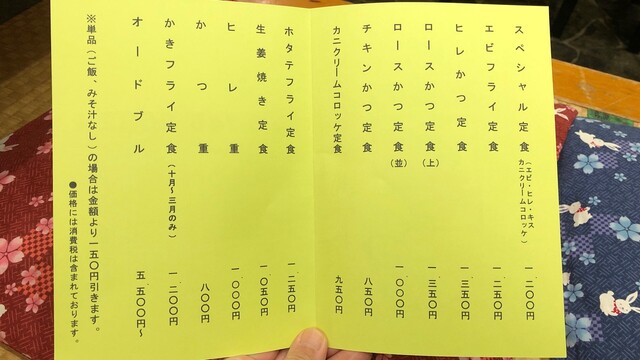 スペシャル定食（エビ・ヒレ・キス カニクリームコロッケ） 一、二〇〇円
エビフライ定食 一、二五〇円
ヒレかつ定食 一、三五〇円
ロースかつ定食（上） 一、三五〇円
ロースかつ定食（並） 一、〇〇〇円
チキンかつ定食 八五〇円
カニクリームコロッケ定食 九五〇円
ホタテフライ定食 一、二五〇円
生姜焼き定食 一、〇五〇円
ヒレ重 一、〇〇〇円
かつ重 八〇〇円
かきフライ定食（十月～三月のみ） 一、二〇〇円
オードブル 五、五〇〇円～
※単品（ご飯、みそ汁なし）の場合は金額より一五〇円引きます。
●価格には消費税は含まれております。